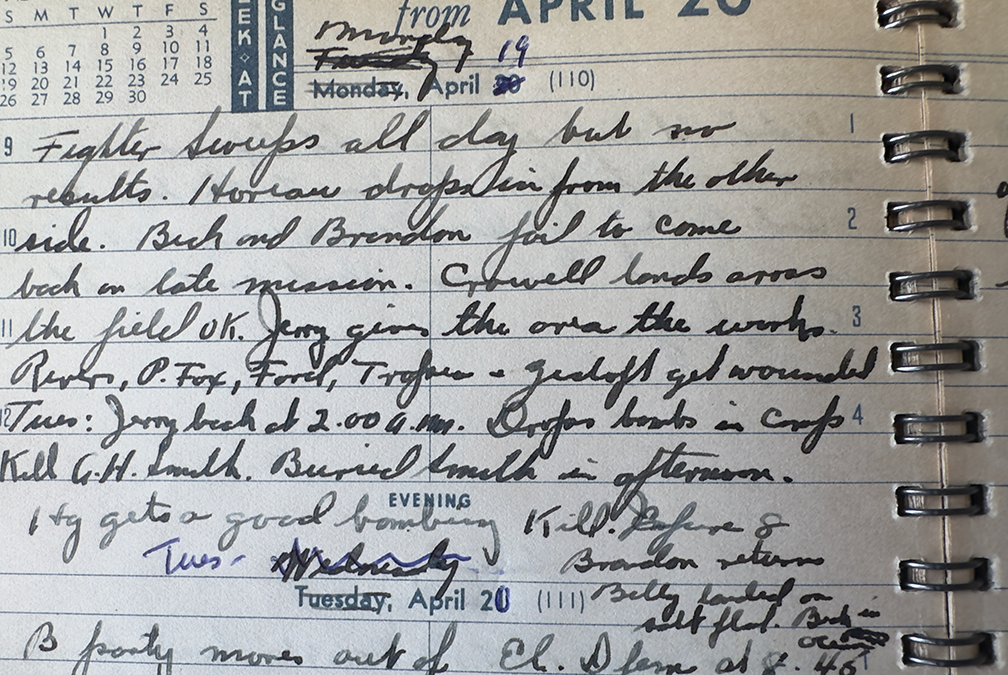 S M T W T F S
1 2 3 4
5 6 7 8 9 10 11
12 13 14 15 16 17 18
19 20 21 22 23 24 25
26 27 28 29 30
EK ◇ AT
GLANCE
from APRIL 20
Monday
Tuesday 19
Monday, April 20 (110)
9 Fighter Sweeps all day but no 1
results. Horeau drops in from the other
10 side. Beck and Brandon fail to come 2
back on late mission. Crowell lands aross
11 the field OK. Jerry gives the area the works. 3
Revers, P. Fox, Ford, & get wounded
12 Tues: Jerry back at 2.00 a.m. Drops bombs in Camps 4
Kill G.H. Smith. Buried Smith in afternoon.
EVENING
Hq gets a good bombing Kill. 8
Tues- Wednesday Brandon returns
Tuesday, April 20 (111) Belly landed on
salt flat. Beck in
B party moves out of El. Djem at 8.45 1